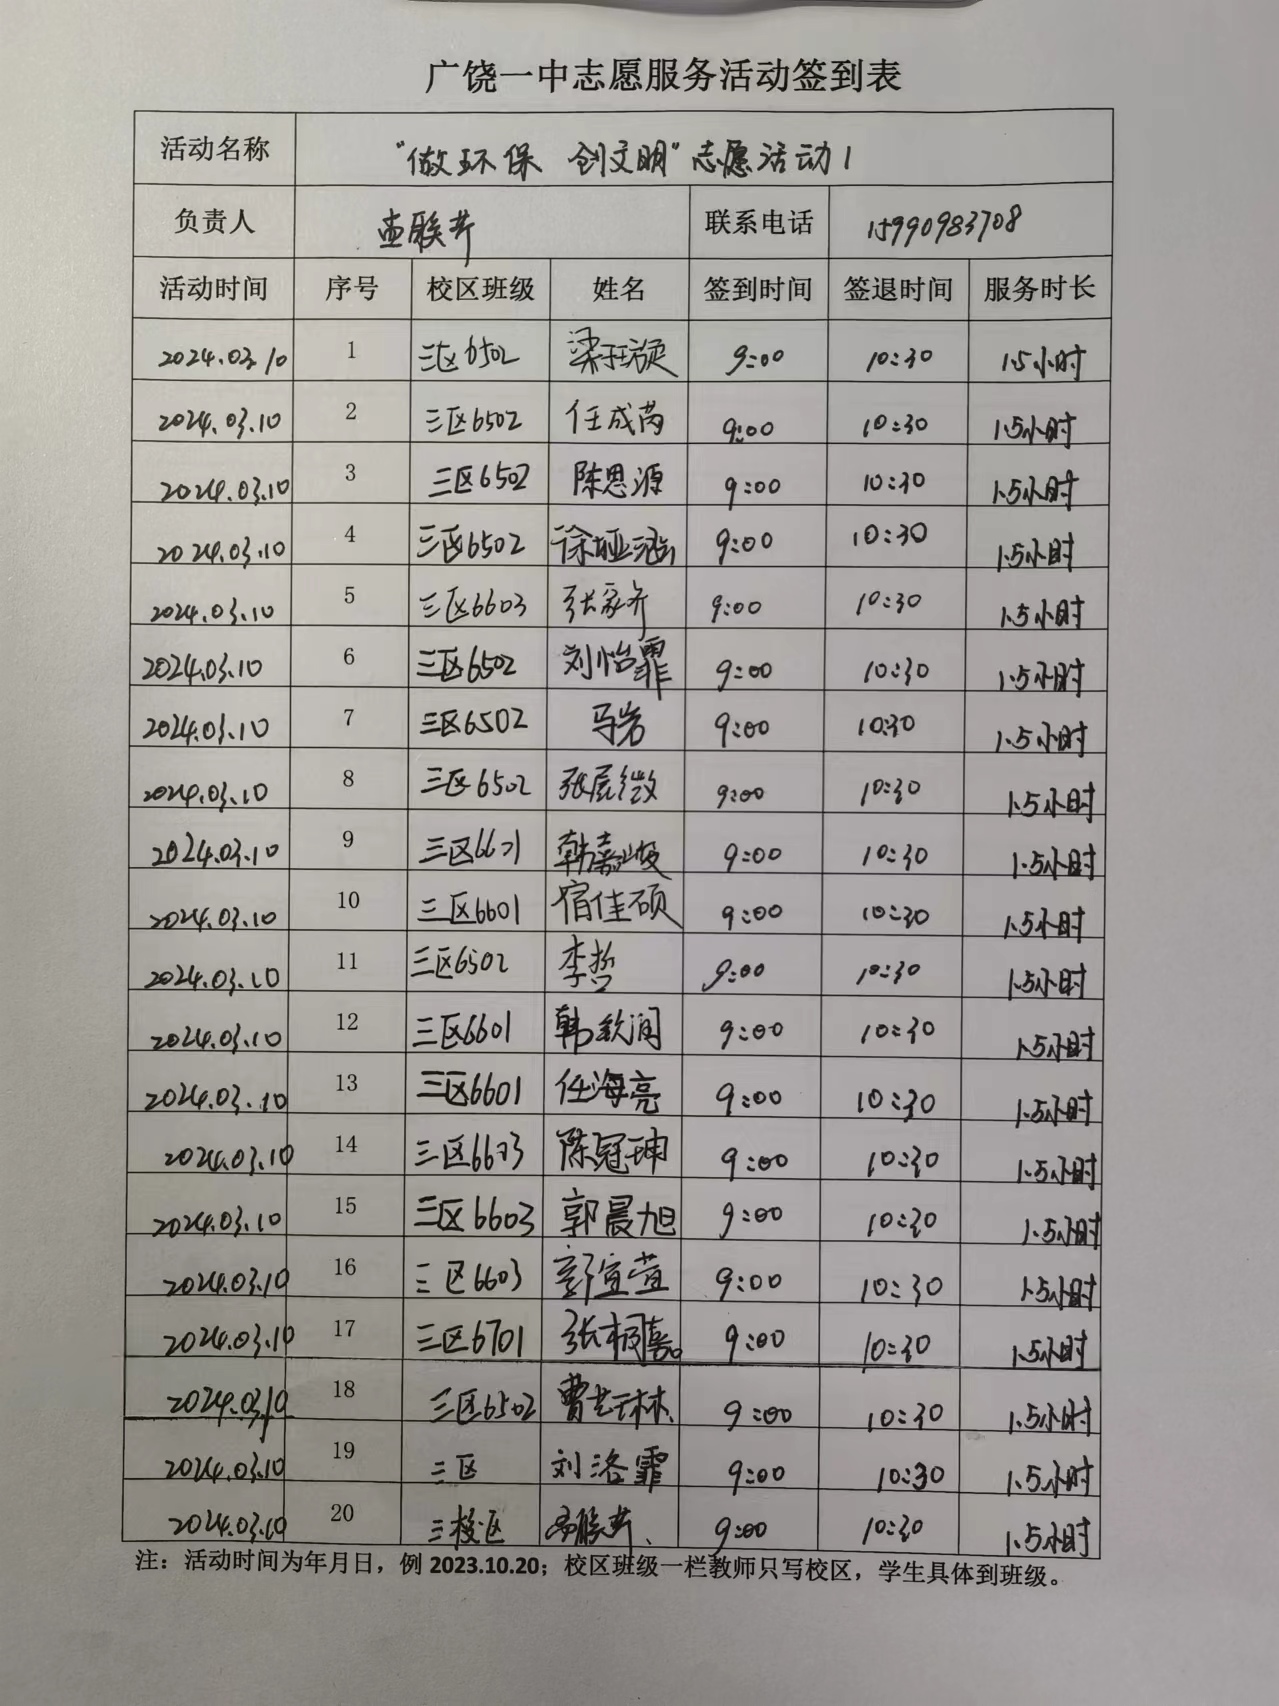 广饶一中志愿服务活动签到表
活动名称 "做环保 创文明"志愿活动1
负责人 联系电话 15990983708
活动时间 序号 校区班级 姓名 签到时间 签退时间 服务时长
2024.03.10 1 三区6502 9:00 10:30 1.5小时
2024.03.10 2 三区6502 任成芮 9:00 10:30 1.5小时
2024.03.10 3 三区6502 陈思源 9:00 10:30 1.5小时
2024.03.10 4 三区6502 徐娅涵 9:00 10:30 1.5小时
2024.03.10 5 三区6603 张家齐 9:00 10:30 1.5小时
2024.03.10 6 三区6502 刘怡霏 9:00 10:30 1.5小时
2024.03.10 7 三区6502 马岩 9:00 10:30 1.5小时
2024.03.10 8 三区6502 张辰微 9:00 10:30 1.5小时
2024.03.10 9 三区6601 韩嘉峻 9:00 10:30 1.5小时
2024.03.10 10 三区6601 宿佳硕 9:00 10:30 1.5小时
2024.03.10 11 三区6502 李哲 9:00 10:30 1.5小时
2024.03.10 12 三区6601 韩钦润 9:00 10:30 1.5小时
2024.03.10 13 三区6601 任海亮 9:00 10:30 1.5小时
2024.03.10 14 三区6603 陈冠珅 9:00 10:30 1.5小时
2024.03.10 15 三区6603 郭晨旭 9:00 10:30 1.5小时
2024.03.10 16 三区6603 郭宣萱 9:00 10:30 1.5小时
2024.03.10 17 三区6701 张桐嘉 9:00 10:30 1.5小时
2024.03.10 18 三区6502 曹艺林 9:00 10:30 1.5小时
2024.03.10 19 三区 刘洛霏 9:00 10:30 1.5小时
2024.03.10 20 三校区 9:00 10:30 1.5小时
注：活动时间为年月日，例 2023.10.20；校区班级一栏教师只写校区，学生具体到班级。